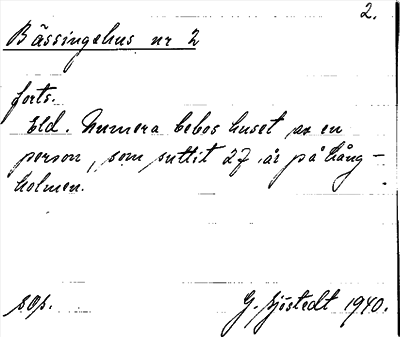 2.
Bässingehus nr 2
forts.
Eld. Numera bebos huset av en
person, som suttit 27 år på Lång-
holmen.
sop.
G. Sjöstedt 1940.